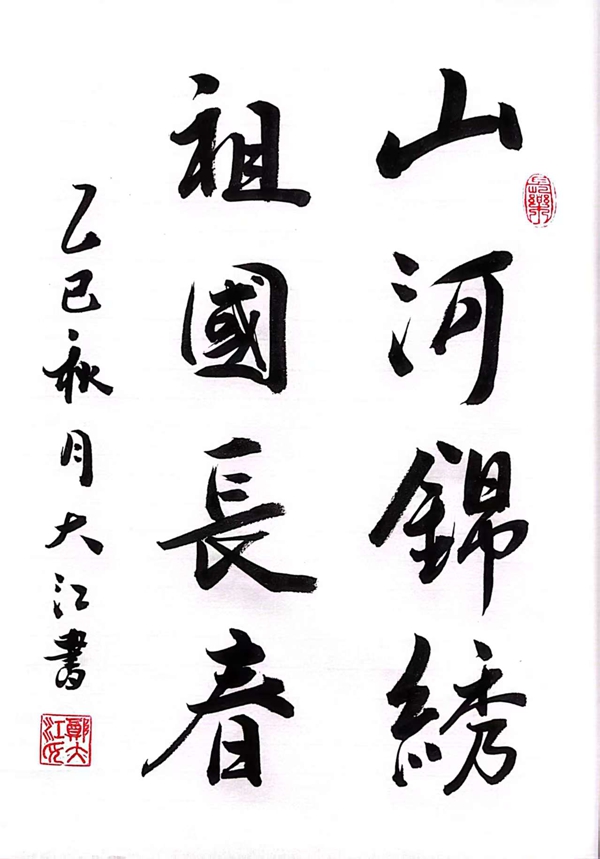 山河錦綉
祖國長春
乙巳秋月大江書
鄭大江